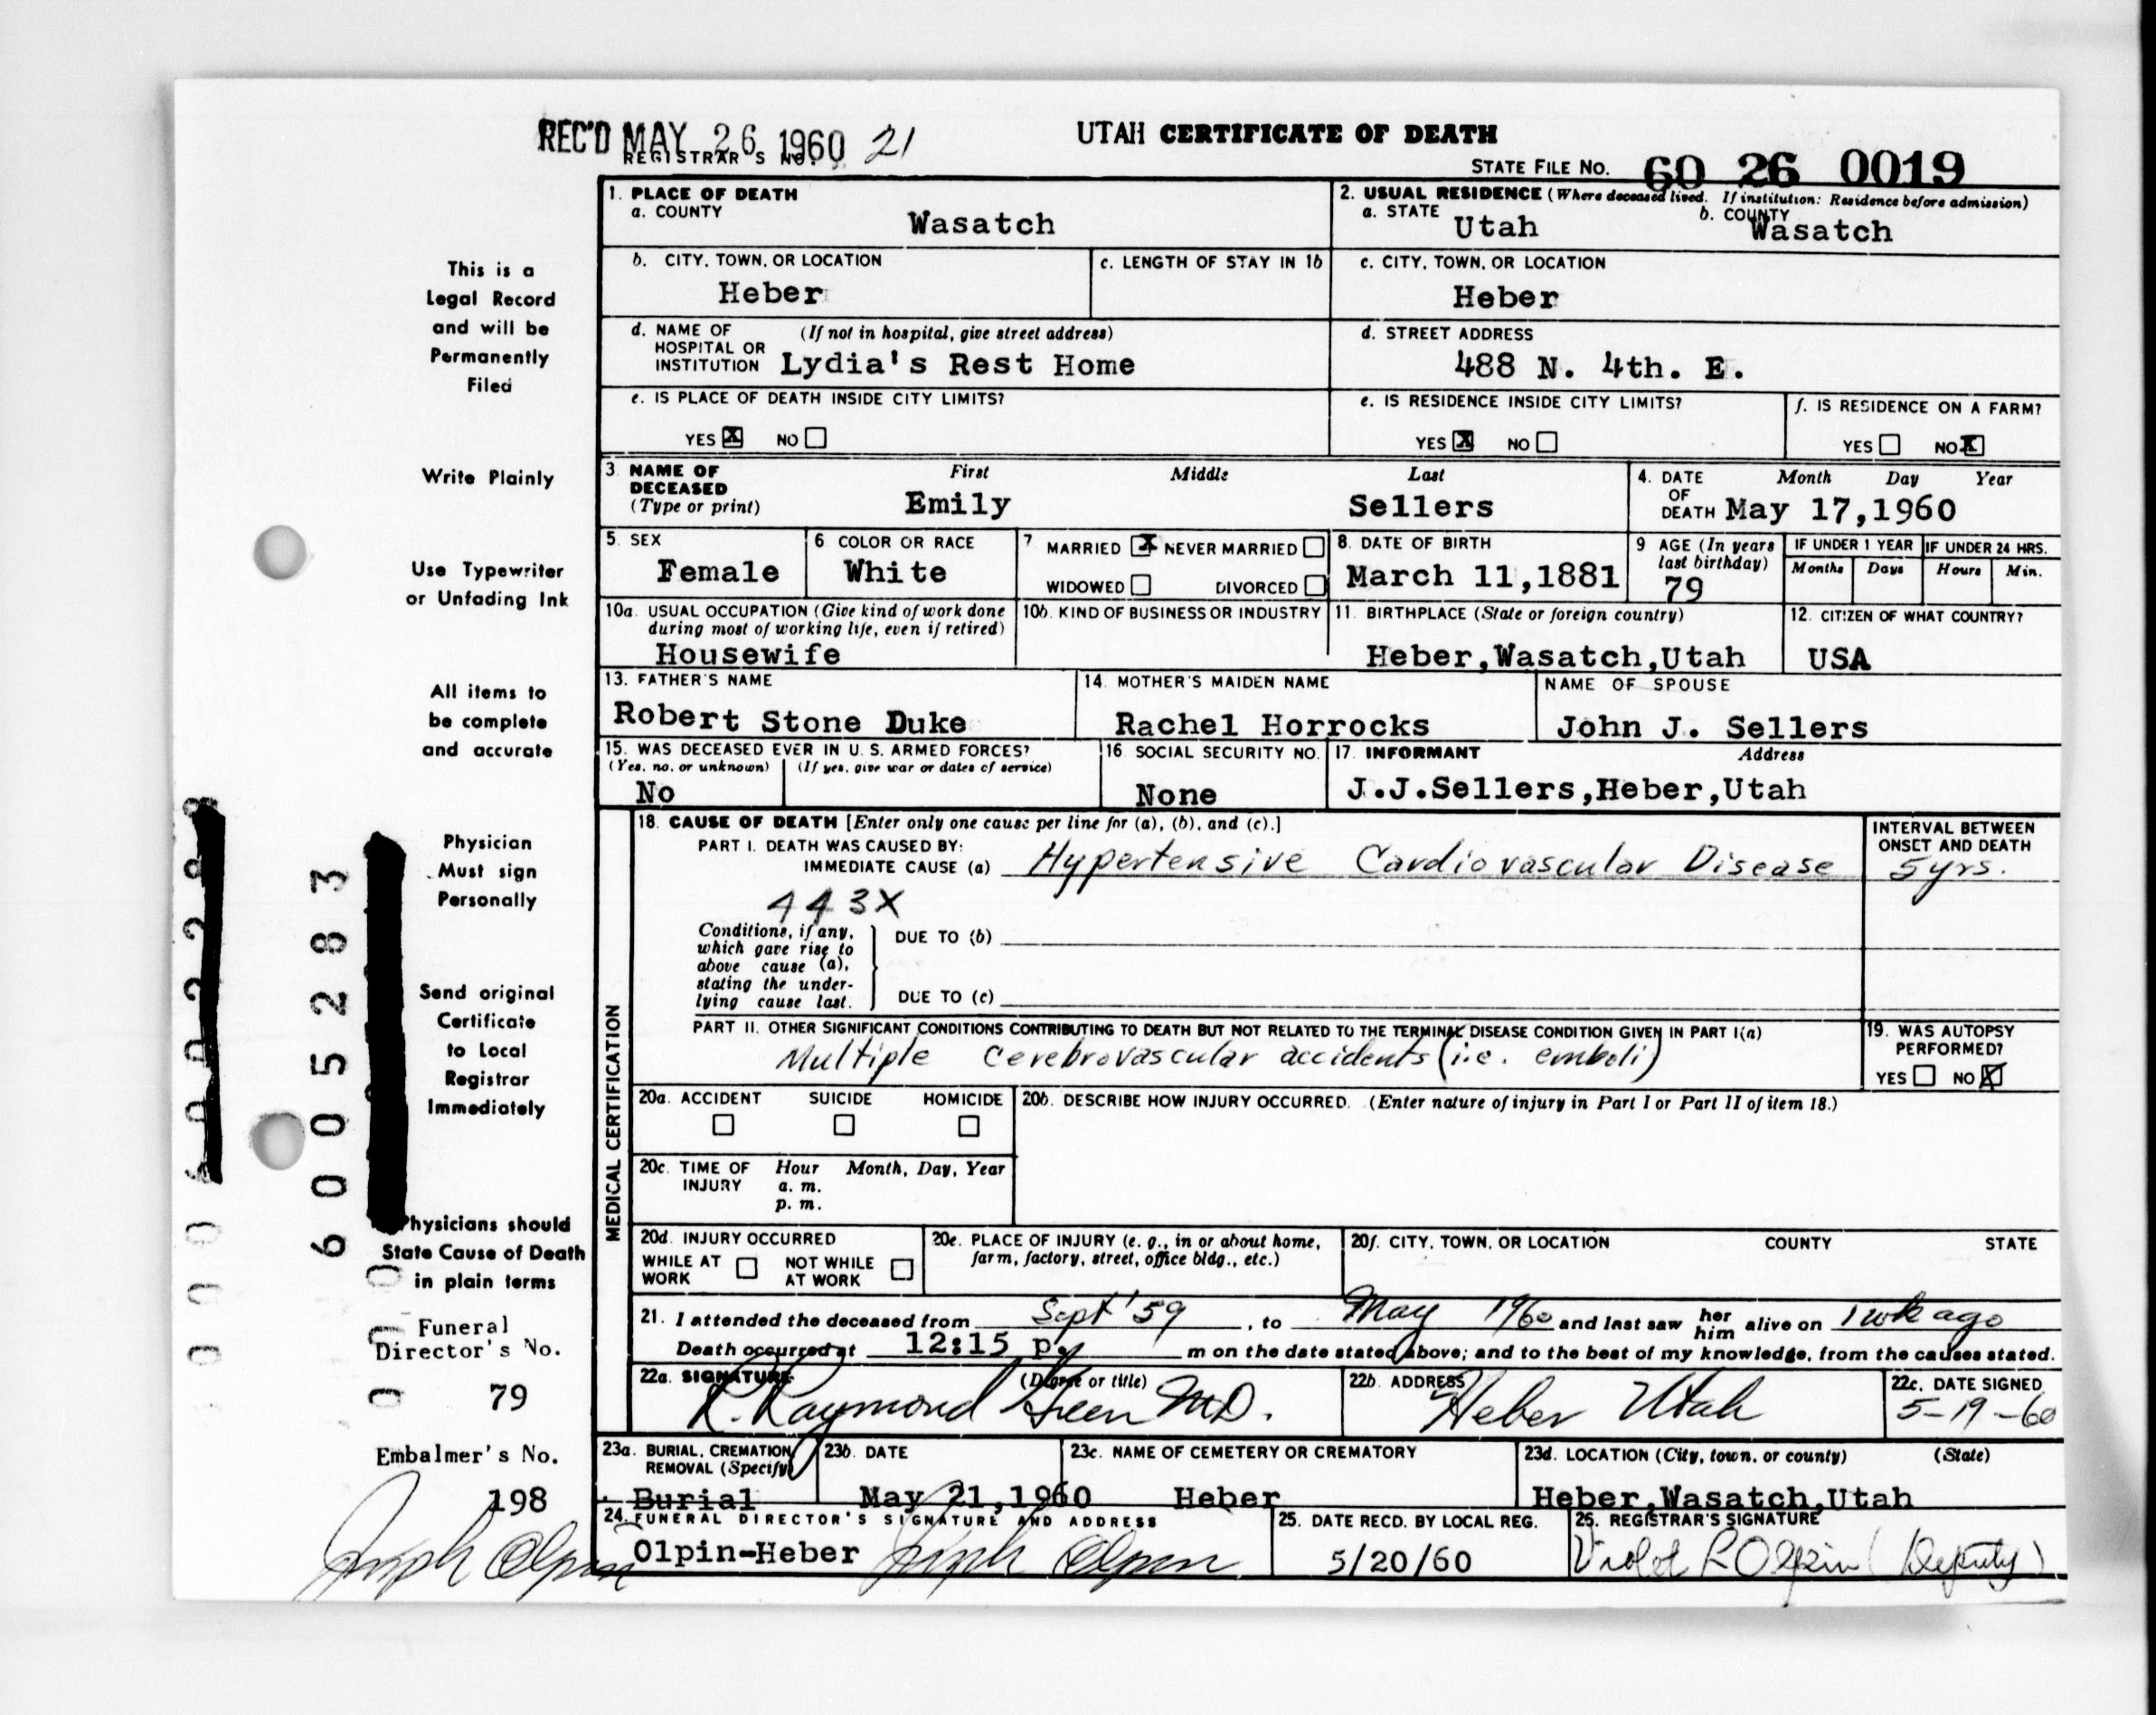 REC'D MAY 26 1960 21
REGISTRAR'S NO.
UTAH CERTIFICATE OF DEATH
STATE FILE NO. 60 26 0019
1. PLACE OF DEATH
a. COUNTY
Wasatch
2. USUAL RESIDENCE (Where deceased lived. If institution: Residence before admission)
a. STATE Utah b. COUNTY Wasatch
b. CITY, TOWN, OR LOCATION
Heber
c. LENGTH OF STAY IN 1b
c. CITY, TOWN, OR LOCATION
Heber
d. NAME OF HOSPITAL OR INSTITUTION (If not in hospital, give street address)
Lydia's Rest Home
d. STREET ADDRESS
488 N. 4th. E.
e. IS PLACE OF DEATH INSIDE CITY LIMITS?
YES X NO
e. IS RESIDENCE INSIDE CITY LIMITS?
YES X NO
f. IS RESIDENCE ON A FARM?
YES NO X
3. NAME OF DECEASED (Type or print)
First Middle Last
Emily Sellers
4. DATE OF DEATH Month Day Year
May 17,1960
5. SEX
Female
6. COLOR OR RACE
White
7 MARRIED X NEVER MARRIED
WIDOWED DIVORCED
8. DATE OF BIRTH
March 11,1881
9 AGE (In years last birthday)
79
IF UNDER 1 YEAR IF UNDER 24 HRS.
Months Days Hours Min.
10a. USUAL OCCUPATION (Give kind of work done during most of working life, even if retired)
Housewife
10b. KIND OF BUSINESS OR INDUSTRY
11. BIRTHPLACE (State or foreign country)
Heber,Wasatch,Utah
12. CITIZEN OF WHAT COUNTRY?
USA
13. FATHER'S NAME
Robert Stone Duke
14. MOTHER'S MAIDEN NAME
Rachel Horrocks
NAME OF SPOUSE
John J. Sellers
15. WAS DECEASED EVER IN U. S. ARMED FORCES?
(Yes, no, or unknown) (If yes, give war or dates of service)
No
16. SOCIAL SECURITY NO.
None
17. INFORMANT Address
J.J.Sellers,Heber,Utah
MEDICAL CERTIFICATION
18. CAUSE OF DEATH [Enter only one cause per line for (a), (b), and (c).]
PART I. DEATH WAS CAUSED BY:
IMMEDIATE CAUSE (a) Hypertensive Cardiovascular Disease
INTERVAL BETWEEN ONSET AND DEATH
5 yrs.
443X
Conditions, if any, which gave rise to above cause (a), stating the underlying cause last.
DUE TO (b)
DUE TO (c)
PART II. OTHER SIGNIFICANT CONDITIONS CONTRIBUTING TO DEATH BUT NOT RELATED TO THE TERMINAL DISEASE CONDITION GIVEN IN PART I(a)
Multiple Cerebrovascular accidents (i.e. emboli)
19. WAS AUTOPSY PERFORMED?
YES NO X
20a. ACCIDENT SUICIDE HOMICIDE
20b. DESCRIBE HOW INJURY OCCURRED. (Enter nature of injury in Part I or Part II of item 18.)
20c. TIME OF INJURY Hour Month, Day, Year
a. m.
p. m.
20d. INJURY OCCURRED
WHILE AT WORK NOT WHILE AT WORK
20e. PLACE OF INJURY (e. g., in or about home, farm, factory, street, office bldg., etc.)
20f. CITY, TOWN, OR LOCATION COUNTY STATE
21. I attended the deceased from Sept '59, to May 1960 and last saw her him alive on 1 wk ago
Death occurred at 12:15 p. m on the date stated above; and to the best of my knowledge, from the causes stated.
22a. SIGNATURE (Degree or title)
R. Raymond Green M.D.
22b. ADDRESS
Heber Utah
22c. DATE SIGNED
5-19-60
23a. BURIAL, CREMATION, REMOVAL (Specify)
Burial
23b. DATE
May 21,1960
23c. NAME OF CEMETERY OR CREMATORY
Heber
23d. LOCATION (City, town, or county) (State)
Heber,Wasatch,Utah
24. FUNERAL DIRECTOR'S SIGNATURE AND ADDRESS
Olpin-Heber Joseph Olpin
25. DATE RECD. BY LOCAL REG.
5/20/60
26. REGISTRAR'S SIGNATURE
Violet R Olpin (Deputy)
This is a
Legal Record
and will be
Permanently
Filed
Write Plainly
Use Typewriter
or Unfading Ink
All items to
be complete
and accurate
Physician
Must sign
Personally
Send original
Certificate
to Local
Registrar
Immediately
Physicians should
State Cause of Death
in plain terms
Funeral
Director's No.
79
Embalmer's No.
198
Joseph Olpin
6005283